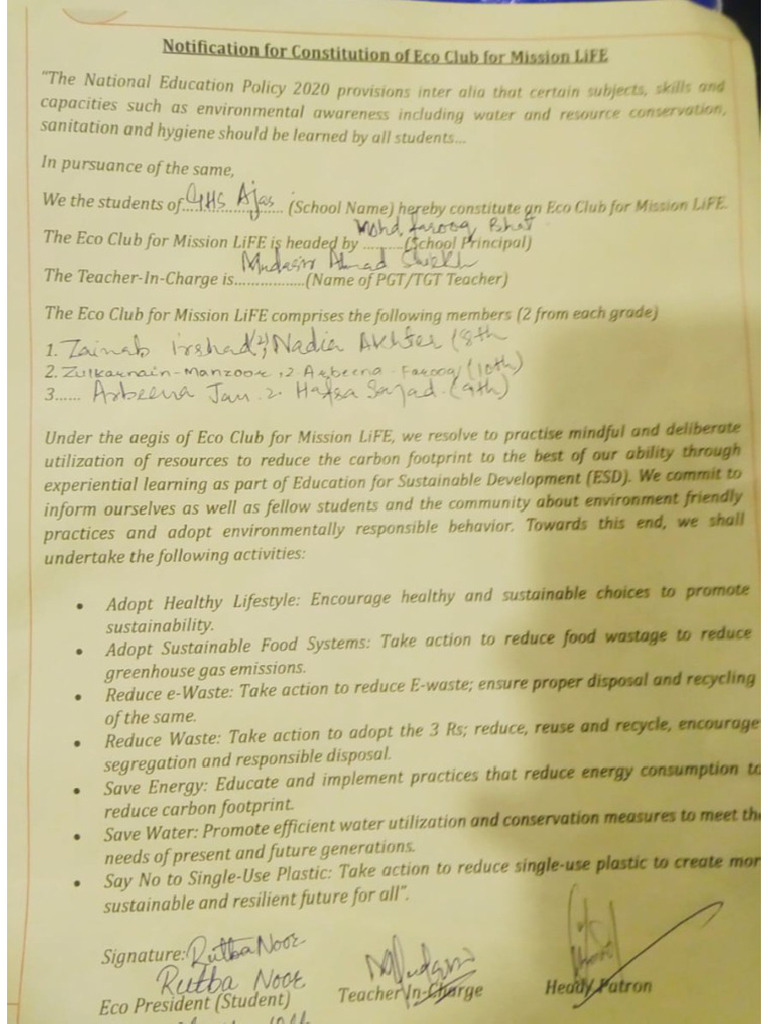 Notification for Constitution of Eco Club for Mission LiFE
"The National Education Policy 2020 provisions inter alia that certain subjects, skills and
capacities such as environmental awareness including water and resource conservation,
sanitation and hygiene should be learned by all students...
In pursuance of the same,
We the students of GHS Ajas (School Name) hereby constitute an Eco Club for Mission LiFE.
Mohd farooq Bhat
The Eco Club for Mission LiFE is headed by .........(School Principal)
Mudasir Ahmad Sheikh
The Teacher-In-Charge is.................(Name of PGT/TGT Teacher)
The Eco Club for Mission LiFE comprises the following members (2 from each grade)
1. Zainab irshad 2, Nadia Akhter (8th
2. Zulkarnain-Manzoor, 2 Arbeena Farooq (10th)
3...... Arbeena Jan 2. Hafsa Sajad. (9th)
Under the aegis of Eco Club for Mission LiFE, we resolve to practise mindful and deliberate
utilization of resources to reduce the carbon footprint to the best of our ability through
experiential learning as part of Education for Sustainable Development (ESD). We commit to
inform ourselves as well as fellow students and the community about environment friendly
practices and adopt environmentally responsible behavior. Towards this end, we shall
undertake the following activities:
• Adopt Healthy Lifestyle: Encourage healthy and sustainable choices to promote
sustainability.
• Adopt Sustainable Food Systems: Take action to reduce food wastage to reduce
greenhouse gas emissions.
• Reduce e-Waste: Take action to reduce E-waste; ensure proper disposal and recycling
of the same.
• Reduce Waste: Take action to adopt the 3 Rs; reduce, reuse and recycle, encourage
segregation and responsible disposal.
• Save Energy: Educate and implement practices that reduce energy consumption to
reduce carbon footprint.
• Save Water: Promote efficient water utilization and conservation measures to meet th
needs of present and future generations.
• Say No to Single-Use Plastic: Take action to reduce single-use plastic to create mor
sustainable and resilient future for all".
Signature: Rutba Noor
Rutba Noor
Eco President (Student) Teacher In-Charge Head/Patron